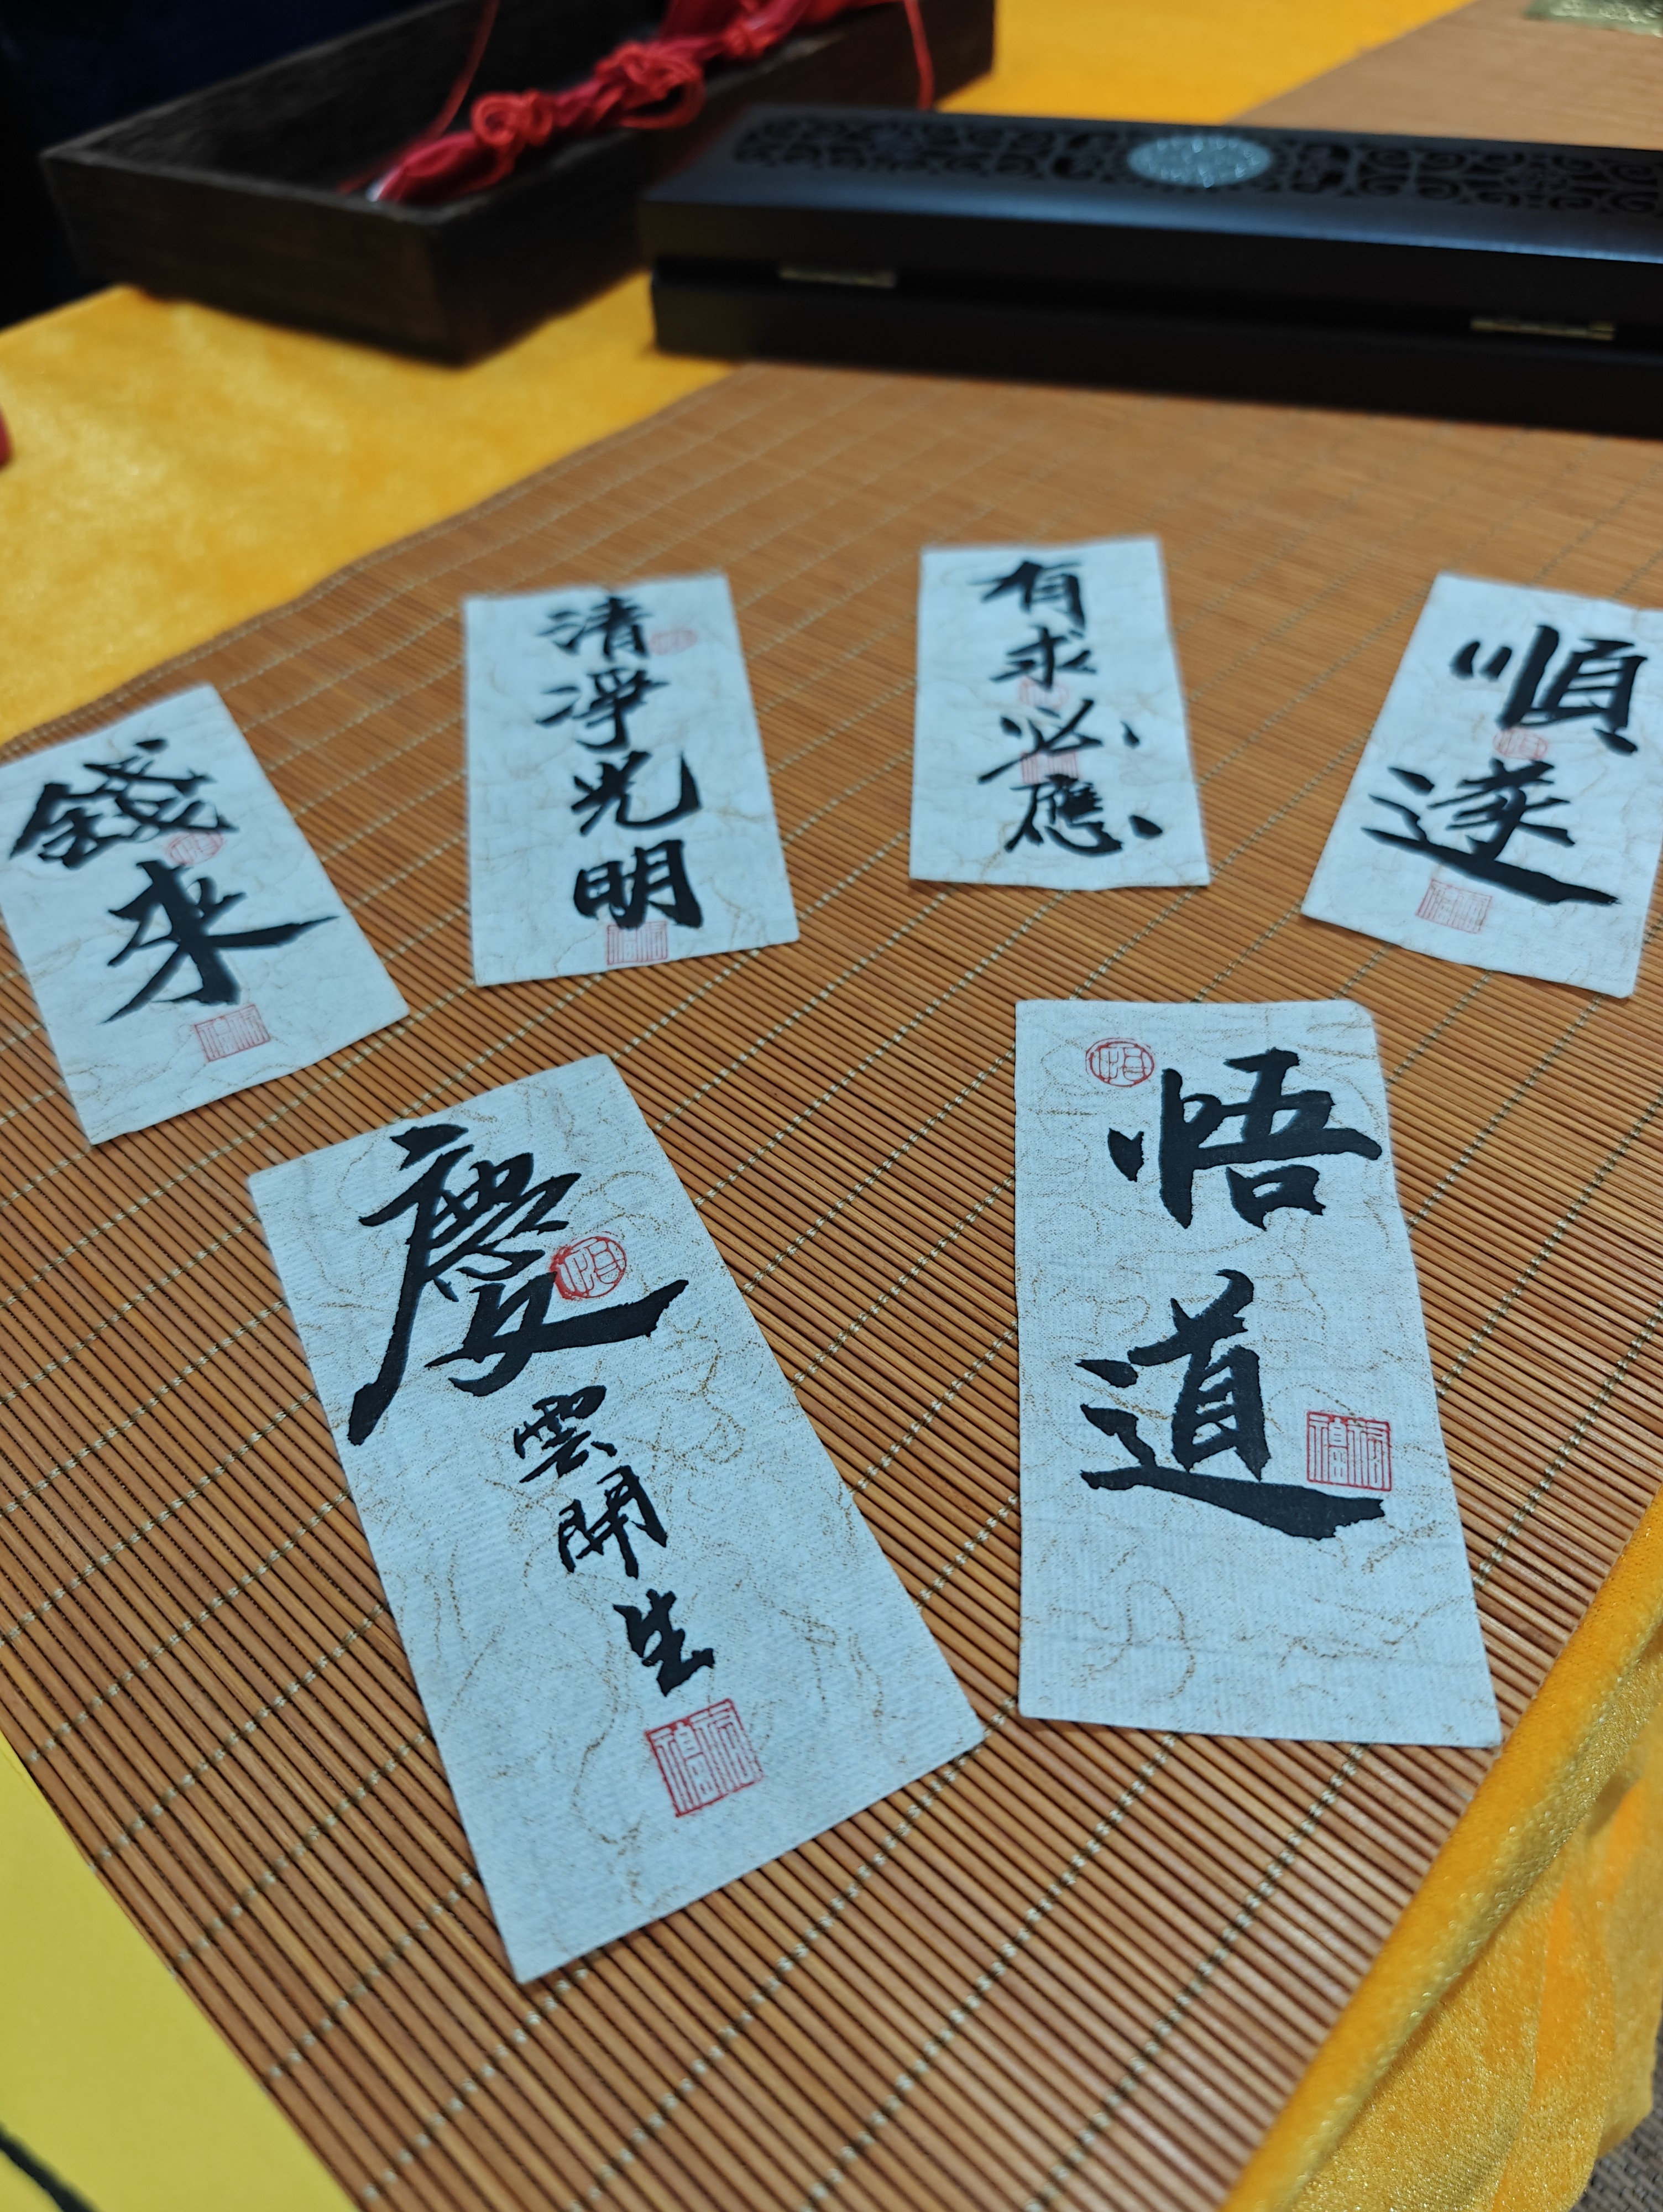 錢來
清淨光明
有求必應
順遂
慶雲開生
悟道